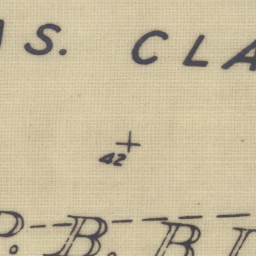 S. CLA
42
P. B. B